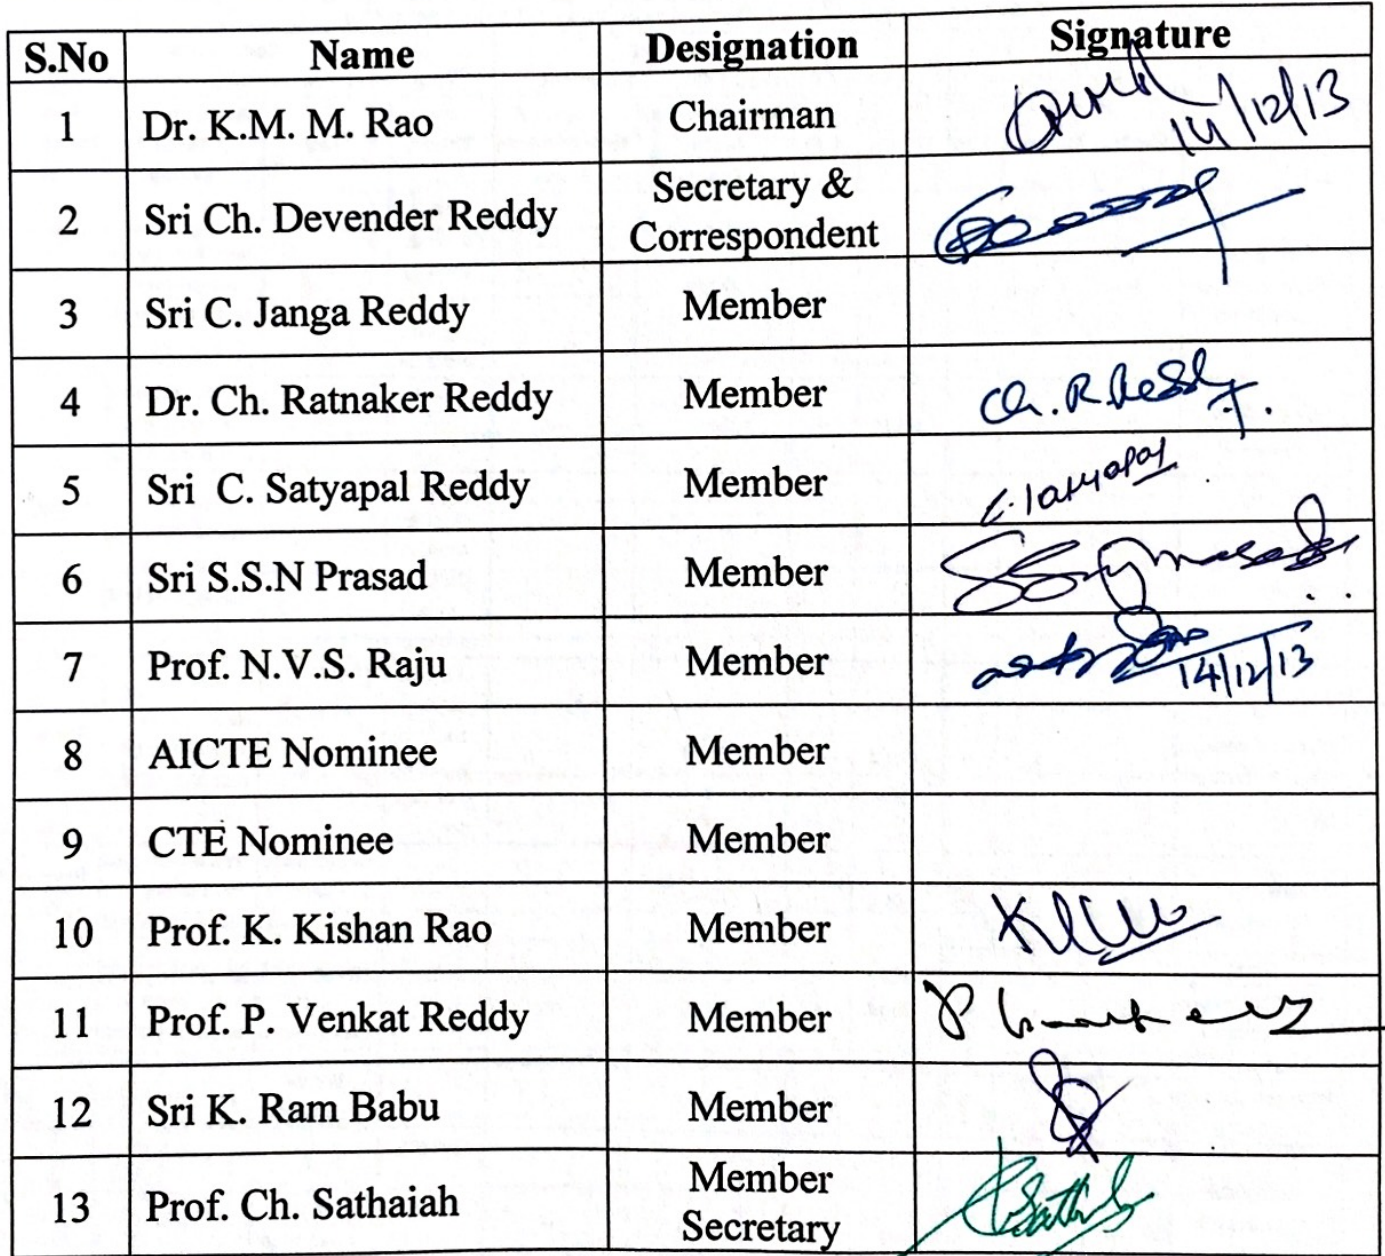 S.No Name Designation Signature
1 Dr. K.M. M. Rao Chairman 14/12/13
2 Sri Ch. Devender Reddy Secretary &
Correspondent
3 Sri C. Janga Reddy Member
4 Dr. Ch. Ratnaker Reddy Member Ch. R Reddy
5 Sri C. Satyapal Reddy Member C. Satyapal
6 Sri S.S.N Prasad Member
7 Prof. N.V.S. Raju Member 14/12/13
8 AICTE Nominee Member
9 CTE Nominee Member
10 Prof. K. Kishan Rao Member
11 Prof. P. Venkat Reddy Member
12 Sri K. Ram Babu Member
13 Prof. Ch. Sathaiah Member
Secretary